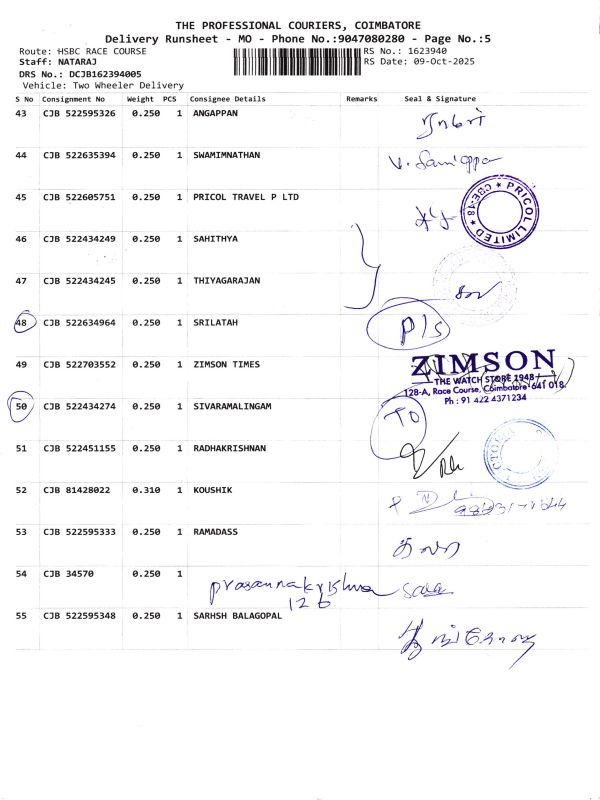 THE PROFESSIONAL COURIERS, COIMBATORE
Delivery Runsheet - MO - Phone No.:9047080280 - Page No.:5
Route: HSBC RACE COURSE RS No.: 1623940
Staff: NATARAJ RS Date: 09-Oct-2025
DRS No.: DCJB162394005
Vehicle: Two Wheeler Delivery
S No Consignment No Weight PCS Consignee Details Remarks Seal & Signature
43 CJB 522595326 0.250 1 ANGAPPAN
44 CJB 522635394 0.250 1 SWAMIMNATHAN
45 CJB 522605751 0.250 1 PRICOL TRAVEL P LTD
PRICOL LIMITED ★ CBE-18 ★
46 CJB 522434249 0.250 1 SAHITHYA
47 CJB 522434245 0.250 1 THIYAGARAJAN
48 CJB 522634964 0.250 1 SRILATAH P/S
49 CJB 522703552 0.250 1 ZIMSON TIMES
ZIMSON
THE WATCH STORE 1948
128-A, Race Course, Coimbatore-641 018.
Ph : 91 422 4371234
50 CJB 522434274 0.250 1 SIVARAMALINGAM TO
51 CJB 522451155 0.250 1 RADHAKRISHNAN
52 CJB 81428022 0.310 1 KOUSHIK
53 CJB 522595333 0.250 1 RAMADASS
54 CJB 34570 0.250 1
prasannakrishna
126
55 CJB 522595348 0.250 1 SARHSH BALAGOPAL